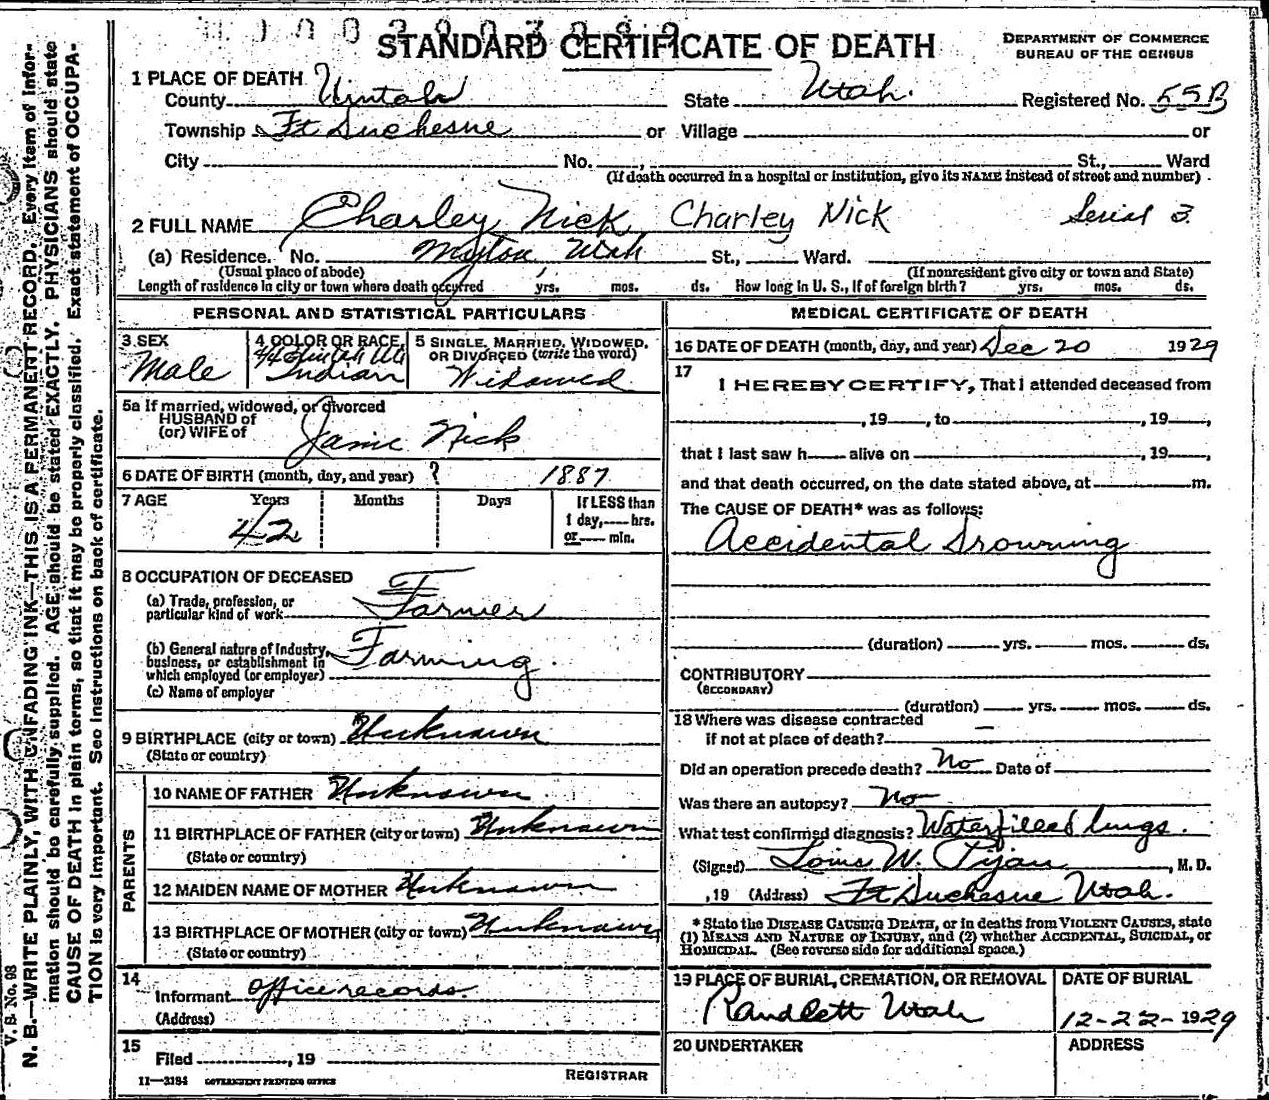 STANDARD CERTIFICATE OF DEATH
DEPARTMENT OF COMMERCE
BUREAU OF THE CENSUS
1 PLACE OF DEATH
County Uintah State Utah. Registered No. 55B
Township Ft Duchesne or Village or
City No. , St., Ward
(If death occurred in a hospital or institution, give its NAME instead of street and number)
2 FULL NAME Charley Nick Charley Nick Serial 3.
(a) Residence. No. Myton, Utah St., Ward.
(Usual place of abode) (If nonresident give city or town and State)
Length of residence in city or town where death occurred yrs. mos. ds. How long in U. S., if of foreign birth? yrs. mos. ds.
PERSONAL AND STATISTICAL PARTICULARS
3 SEX
Male
4 COLOR OR RACE
4/4 Uintah Ute
Indian
5 SINGLE, MARRIED, WIDOWED,
OR DIVORCED (write the word)
Widowed
5a If married, widowed, or divorced
HUSBAND of
(or) WIFE of
Janie Nick
6 DATE OF BIRTH (month, day, and year) ? 1887
7 AGE Years Months Days If LESS than
42 1 day, hrs.
or min.
8 OCCUPATION OF DECEASED
(a) Trade, profession, or
particular kind of work Farmer
(b) General nature of Industry,
business, or establishment in
which employed (or employer) Farming.
(c) Name of employer
9 BIRTHPLACE (city or town) Unknown
(State or country)
PARENTS
10 NAME OF FATHER Unknown
11 BIRTHPLACE OF FATHER (city or town) Unknown
(State or country)
12 MAIDEN NAME OF MOTHER Unknown
13 BIRTHPLACE OF MOTHER (city or town) Unknown
(State or country)
14
Informant office records.
(Address)
15
Filed , 19
REGISTRAR
11—3184 GOVERNMENT PRINTING OFFICE
MEDICAL CERTIFICATE OF DEATH
16 DATE OF DEATH (month, day, and year) Dec 20 1929
17
I HEREBY CERTIFY, That I attended deceased from
, 19 , to , 19 ,
that I last saw h alive on , 19 ,
and that death occurred, on the date stated above, at m.
The CAUSE OF DEATH* was as follows:
Accidental Drowning
(duration) yrs. mos. ds.
CONTRIBUTORY
(SECONDARY)
(duration) yrs. mos. ds.
18 Where was disease contracted
if not at place of death? —
Did an operation precede death? No Date of
Was there an autopsy? No
What test confirmed diagnosis? Waterfilled lungs.
(Signed) W. , M. D.
, 19 (Address) Ft Duchesne Utah.
* State the DISEASE CAUSING DEATH, or in deaths from VIOLENT CAUSES, state
(1) MEANS AND NATURE OF INJURY, and (2) whether ACCIDENTAL, SUICIDAL, or
HOMICIDAL. (See reverse side for additional space.)
19 PLACE OF BURIAL, CREMATION, OR REMOVAL
Randlett Utah
DATE OF BURIAL
12-22-1929
20 UNDERTAKER
ADDRESS
V. S. No. 98
N. B.—WRITE PLAINLY, WITH UNFADING INK—THIS IS A PERMANENT RECORD. Every item of infor-
mation should be carefully supplied. AGE should be stated EXACTLY. PHYSICIANS should state
CAUSE OF DEATH in plain terms, so that it may be properly classified. Exact statement of OCCUPA-
TION is very important. See instructions on back of certificate.